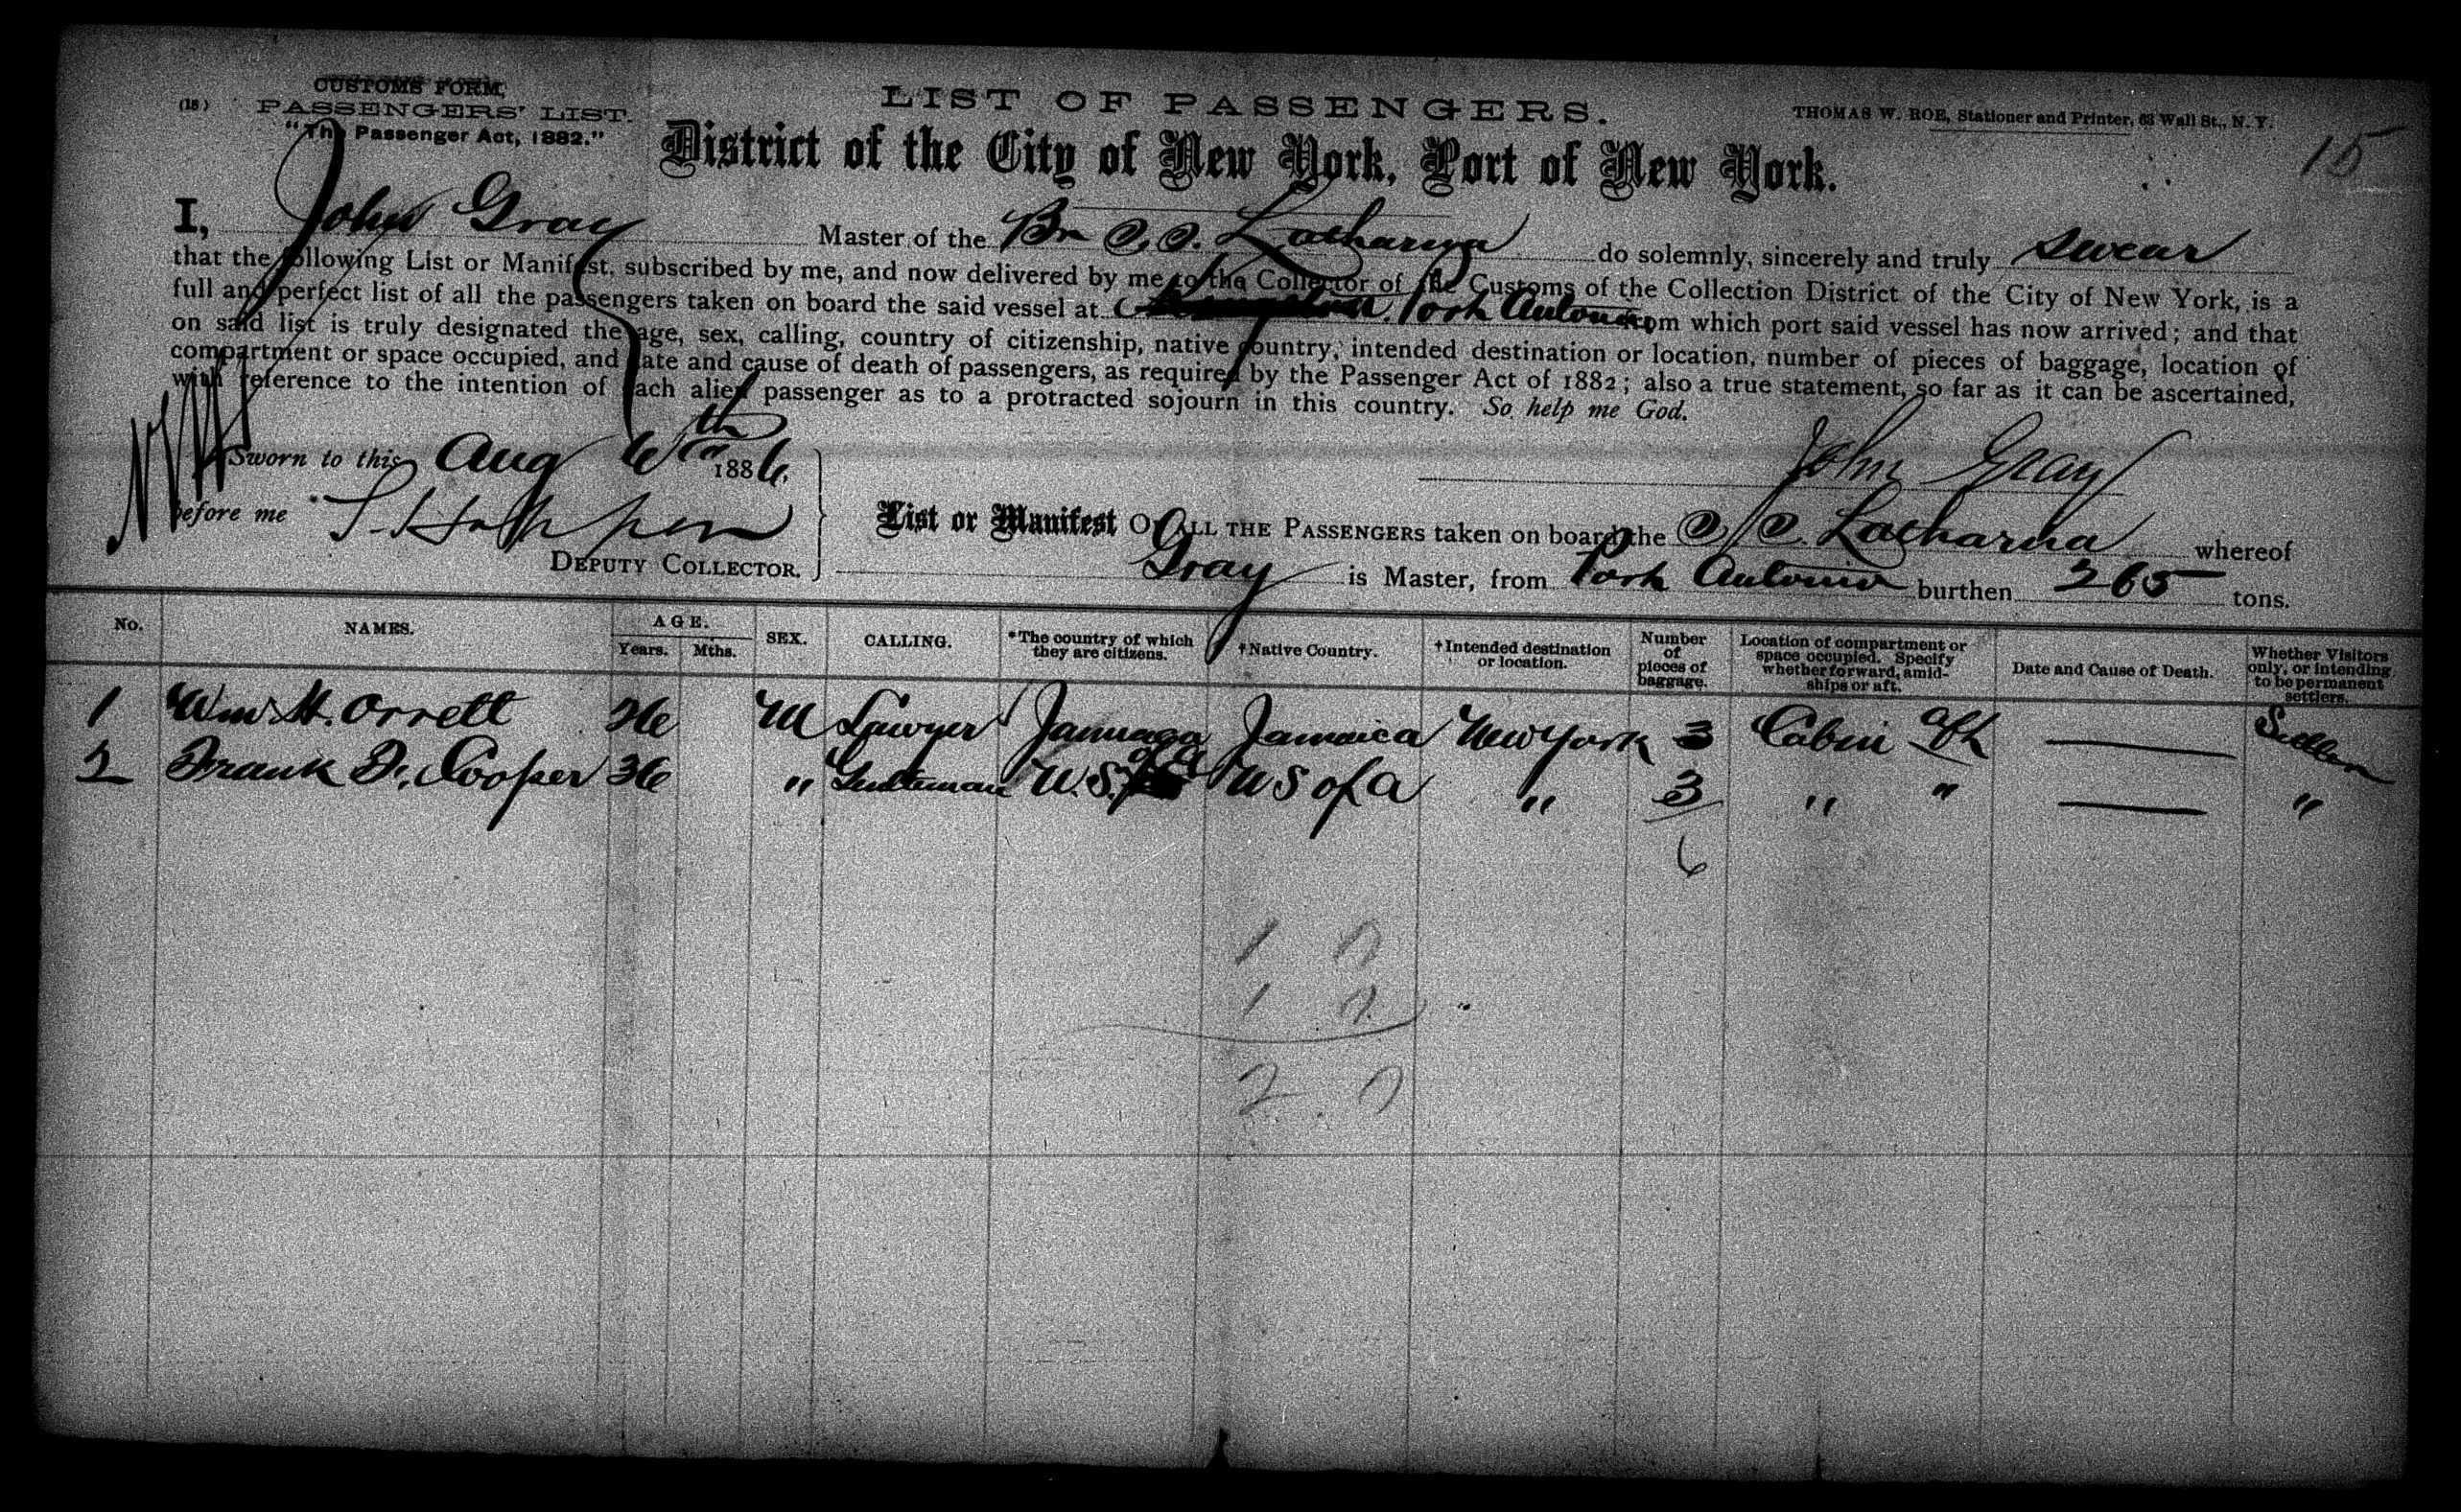 CUSTOMS FORM,
(18) PASSENGERS' LIST.
"The Passenger Act, 1882."
LIST OF PASSENGERS.
THOMAS W. ROE, Stationer and Printer, 63 Wall St., N. Y.
15
District of the City of New York, Port of New York.
I, John Gray Master of the Br S.S. Lacharna do solemnly, sincerely and truly swear
that the following List or Manifest, subscribed by me, and now delivered by me to the Collector of the Customs of the Collection District of the City of New York, is a
full and perfect list of all the passengers taken on board the said vessel at Port Antonio from which port said vessel has now arrived; and that
on said list is truly designated the age, sex, calling, country of citizenship, native country, intended destination or location, number of pieces of baggage, location of
compartment or space occupied, and date and cause of death of passengers, as required by the Passenger Act of 1882; also a true statement, so far as it can be ascertained,
with reference to the intention of each alien passenger as to a protracted sojourn in this country. So help me God.
Sworn to this Aug 6th 1886. John Gray
before me
DEPUTY COLLECTOR.
List or Manifest OF ALL THE PASSENGERS taken on board the S/S. Lacharna whereof
Gray is Master, from Port Antonio burthen 265 tons.
No. NAMES. AGE. Years. Mths. SEX. CALLING. *The country of which they are citizens. †Native Country. †Intended destination or location. Number of pieces of baggage. Location of compartment or space occupied. Specify whether forward, amidships or aft. Date and Cause of Death. Whether Visitors only, or intending to be permanent settlers.
1 Wm H. Orrett 26 M Lawyer Jamaica Jamaica New York 3 Cabin aft —
2 Frank D. Cooper 36 " Gentleman U.S. of a U S of a " 3 " " — "
6
1
1
2